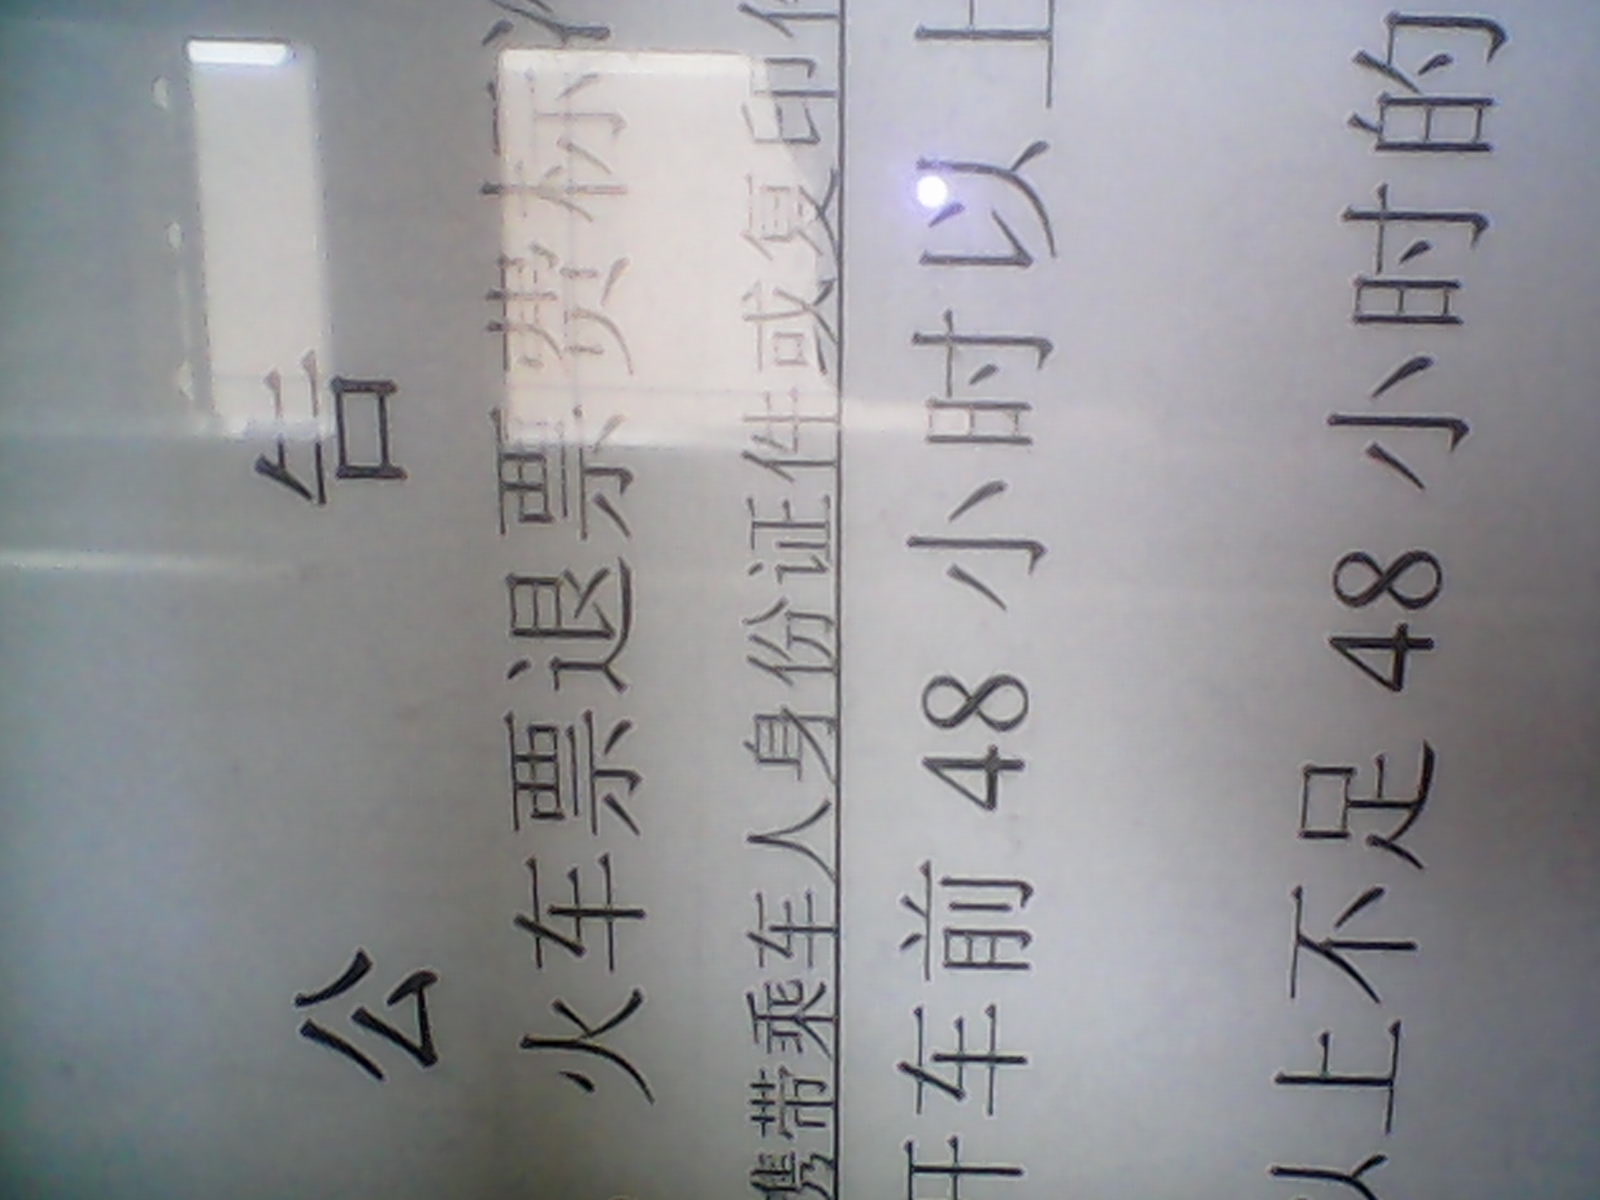 公告
火车票退票费标
携带乘车人身份证件或复印件
开车前 48 小时以上
以上不足 48 小时的